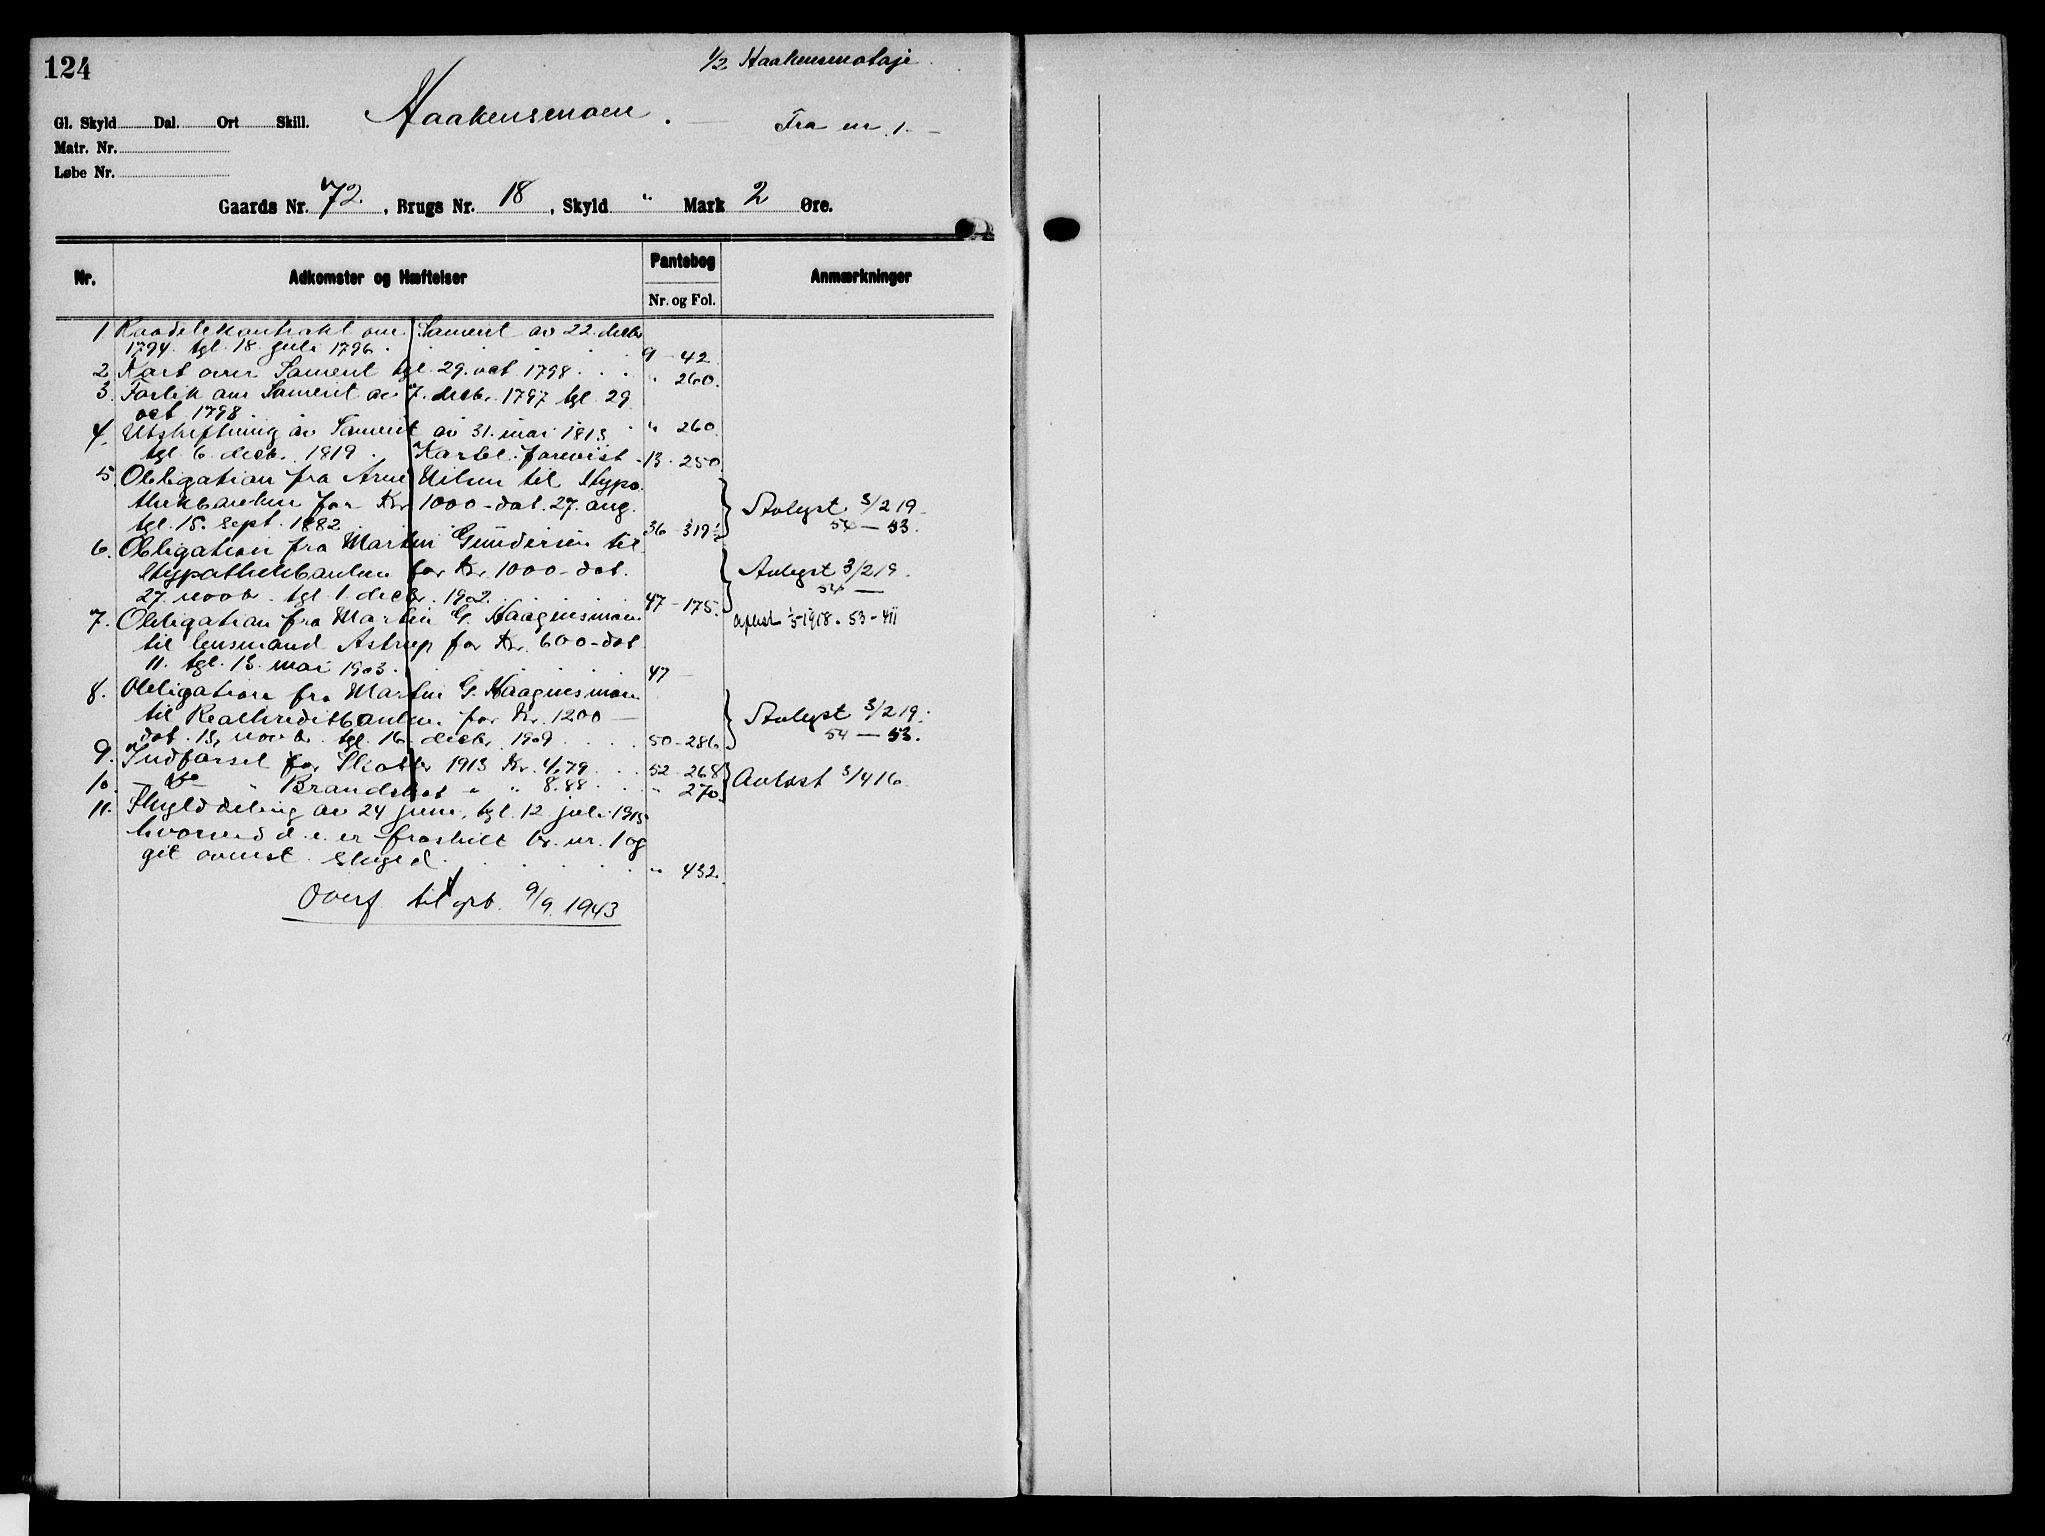 124
1/2 Haakensmotaje
Gl. Skyld Dal. Ort Skill. Haakensmoen. Fra nr. 1.
Matr. Nr.
Løbe Nr.
Gaards Nr. 72., Brugs Nr. 18, Skyld " Mark 2 Øre.
Nr. Adkomster og Hæftelser Pantebog Anmærkninger
Nr. og Fol.
1 kontrakt om av 22. decbr
1794. tgl. 18. juli 1796. 9 - 42
2 Kart over tgl. 29. oct 1798 " 260.
3. Forlik om av 7. decbr. 1797 tgl 29
oct 1798 " 260
4. Utskiftning av av 31. mai 1813
tgl 6. decb. 1819. Kartet forevist 13 - 250
5. Obligation fra Arne Nilsen til Hypo-
thekbanken for Kr. 1000 - dat. 27. aug. } Avlyst 3/2 19
tgl. 15. sept. 1882 36 - 319 54 — 53.
6. Obligation fra Martin Gundersen til
Hypothekbanken for Kr. 1000 - dat. } Avlyst 3/2 19.
27. novbr. tgl. 1. decbr. 1902. 47 - 175. 54 —
7. Obligation fra Martin G. Haagensmoen 1918. 53 - 411
til lensmand Astrup for Kr. 600 - dat
11. tgl. 13. mai 1903. 47 —
8. Obligation fra Martin G. Haagensmoen
til Realkreditbanken for Kr. 1200 — } Avlyst 3/2 19.
dat. 13. novb. tgl. 16. decbr. 1909 50 - 286 54 — 53.
9. Indførsel for Skatter 1913 Kr. 4.79 52 - 268
10. do " Brandskat " " 8.88 " 270. } Avløst 3/4 16
11. Skylddeling av 24 juni, tgl. 12 juli 1915
hvorved d. e. er fraskilt br. nr. 1 og
git ovenst. skyld " 432.
Overf. til grb. 9/9. 1943